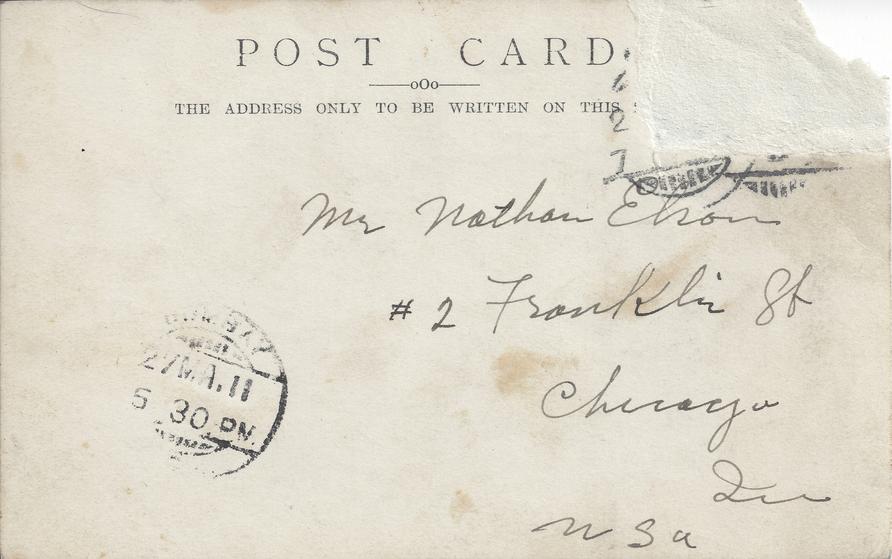 POST CARD
THE ADDRESS ONLY TO BE WRITTEN ON THIS
6
2
7
Mr Nathan Elson
# 2 Franklin St
Chicago
Ill
U S a
BOMBAY
27 MA. 11
5 30 PM